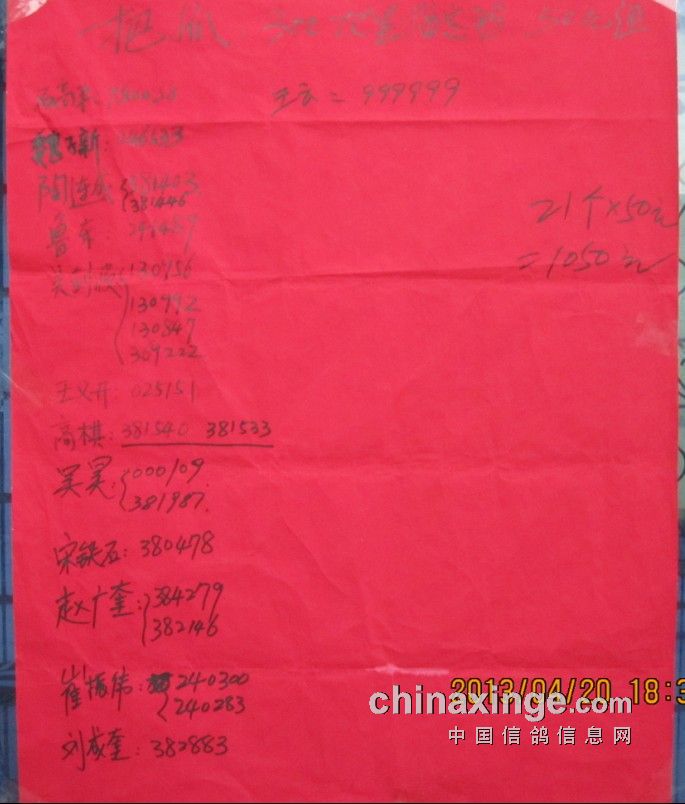 王 = 999999
新: 246633
陶连 381403
381446
鲁 241487
吴剑波 130756
130792
130847
309222
21个×50元
=1050元
王义开: 025151
高棋: 381540 381533
吴昊: 000109
381987
宋铁石: 380478
赵广奎: 384279
382146
崔振伟: 240300
240283
刘成奎: 382883
2013/04/20 18:3
chinaxinge.com
中国信鸽信息网